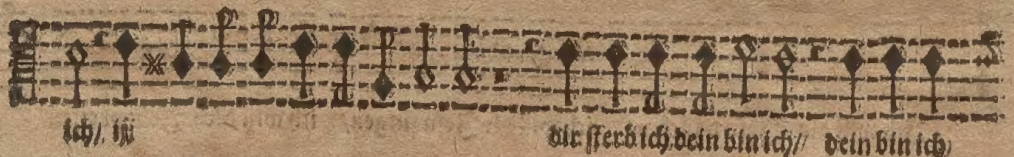 ich/, iji dir sterb ich dein bin ich// dein bin ich/